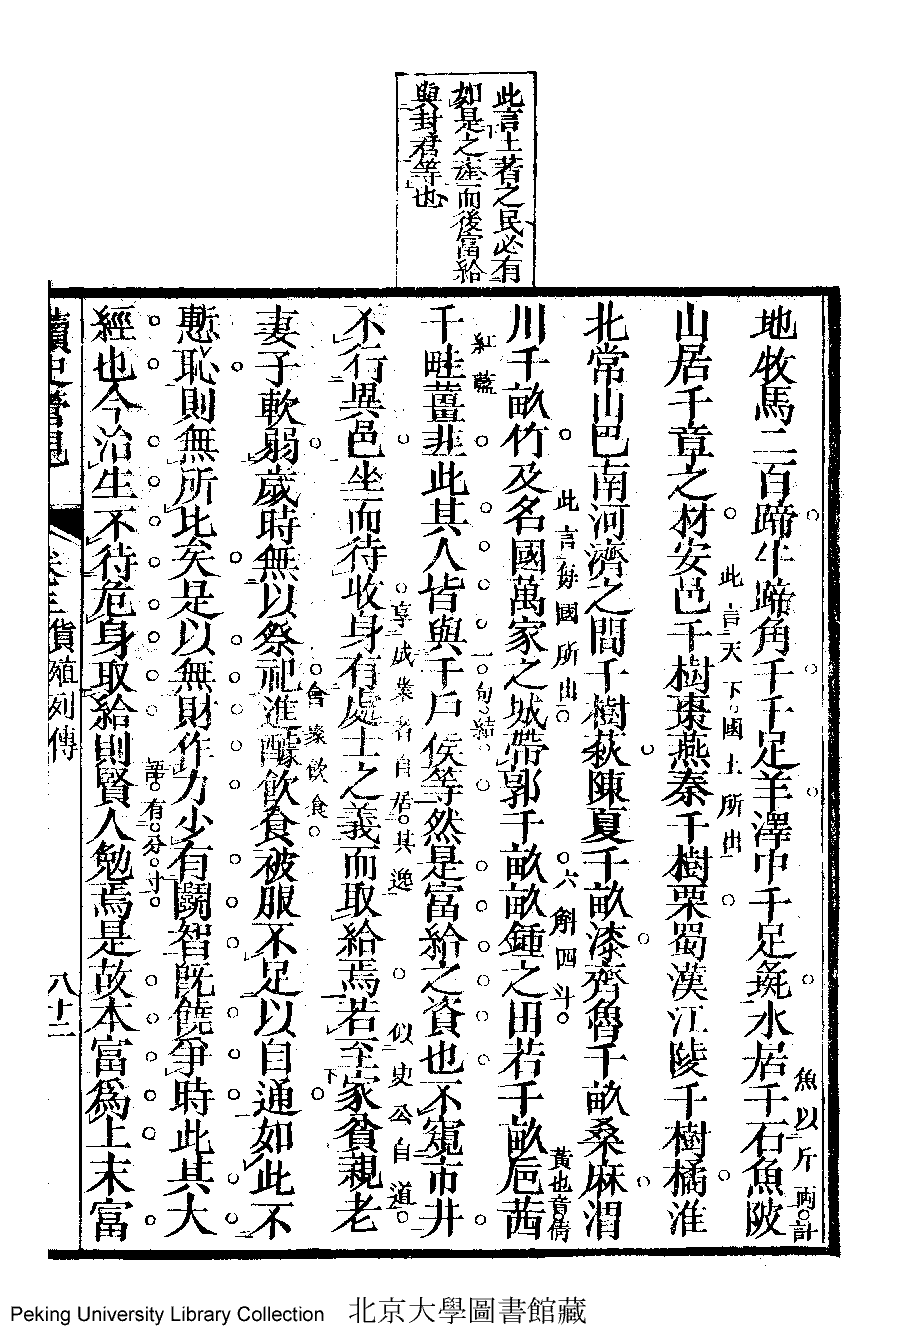 此言土著之民必有
如是之產而後富給
與封君等也
地牧馬二百蹄牛蹄角千千足羊澤中千足彘水居千石魚陂
魚以斤兩計
山居千章之材安邑千樹棗燕秦千樹栗蜀漢江陵千樹橘淮
此言天下國土所出
北常山巴南河濟之間千樹萩陳夏千畝漆齊魯千畝桑麻渭
川千畝竹及名國萬家之城帶郭千畝畝鍾之田若千畝巵茜
此言餘國所出
六斛四斗
黃也音倩
千畦薑韭此其人皆與千戶侯等然是富給之資也不窺市井
紅藍
一句結
不行異邑坐而待收身有處士之義而取給焉若至家貧親老
享成業者自居其逸
似史公自道
妻子軟弱歲時無以祭祀進醵飲食被服不足以自通如此不
會聚飲食
慙恥則無所比矣是以無財作力少有鬭智旣饒爭時此其大
經也今治生不待危身取給則賢人勉焉是故本富爲上末富
語有分寸
讀史管見
卷三貨殖列傳
八十二
Peking University Library Collection 北京大學圖書館藏